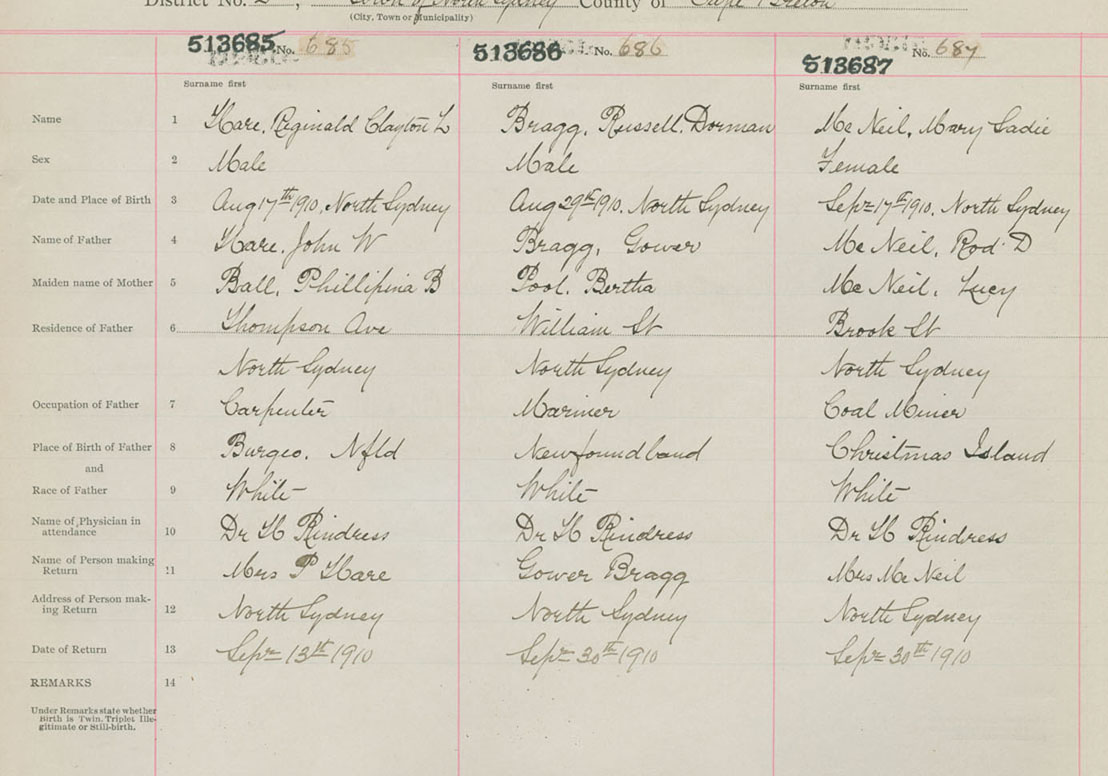 District No. 2, Town of North Sydney County of Cape Breton
(City, Town or Municipality)
513685 No. 685 513686 No. 686 513687 No. 687
Surname first Surname first Surname first
Name 1 Hare, Reginald Clayton L Bragg, Russell. Dorman Mc Neil, Mary Sadie
Sex 2 Male Male Female
Date and Place of Birth 3 Aug 17th 1910, North Sydney Aug 29th 1910. North Sydney Sept 17th 1910. North Sydney
Name of Father 4 Hare, John W Bragg, Gower Mc Neil, Rod. D
Maiden name of Mother 5 Ball, Phillipina B Pool. Bertha Mc Neil, Lucy
Residence of Father 6 Thompson Ave William St Brook St
North Sydney North Sydney North Sydney
Occupation of Father 7 Carpenter Mariner Coal Miner
Place of Birth of Father 8 Burgeo. Nfld Newfoundland Christmas Island
and
Race of Father 9 White White White
Name of Physician in
attendance 10 Dr H Rindress Dr H Rindress Dr H Rindress
Name of Person making
Return 11 Mrs P Hare Gower Bragg Mrs Mc Neil
Address of Person mak-
ing Return 12 North Sydney North Sydney North Sydney
Date of Return 13 Sept 13th 1910 Sept 30th 1910 Sept 30th 1910
REMARKS 14
Under Remarks state whether
Birth is Twin, Triplet Ille-
gitimate or Still-birth.